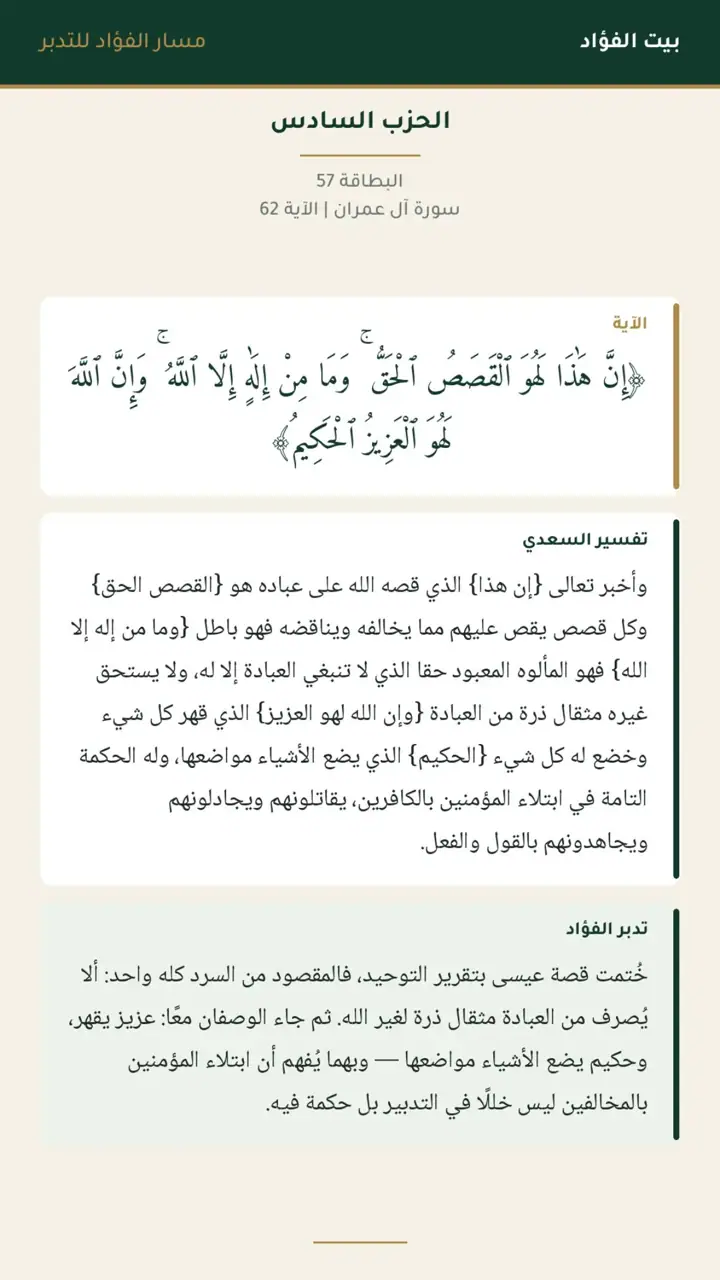 بيت الفؤاد
مسار الفؤاد للتدبر
الحزب السادس
البطاقة 57
سورة آل عمران | الآية 62
الآية
﴿إِنَّ هَٰذَا لَهُوَ ٱلْقَصَصُ ٱلْحَقُّ ۚ وَمَا مِنْ إِلَٰهٍ إِلَّا ٱللَّهُ ۚ وَإِنَّ ٱللَّهَ
لَهُوَ ٱلْعَزِيزُ ٱلْحَكِيمُ﴾
تفسير السعدي
وأخبر تعالى {إن هذا} الذي قصه الله على عباده هو {القصص الحق}
وكل قصص يقص عليهم مما يخالفه ويناقضه فهو باطل {وما من إله إلا
الله} فهو المألوه المعبود حقا الذي لا تنبغي العبادة إلا له، ولا يستحق
غيره مثقال ذرة من العبادة {وإن الله لهو العزيز} الذي قهر كل شيء
وخضع له كل شيء {الحكيم} الذي يضع الأشياء مواضعها، وله الحكمة
التامة في ابتلاء المؤمنين بالكافرين، يقاتلونهم ويجادلونهم
ويجاهدونهم بالقول والفعل.
تدبر الفؤاد
خُتمت قصة عيسى بتقرير التوحيد، فالمقصود من السرد كله واحد: ألا
يُصرف من العبادة مثقال ذرة لغير الله. ثم جاء الوصفان معًا: عزيز يقهر،
وحكيم يضع الأشياء مواضعها — وبهما يُفهم أن ابتلاء المؤمنين
بالمخالفين ليس خللًا في التدبير بل حكمة فيه.